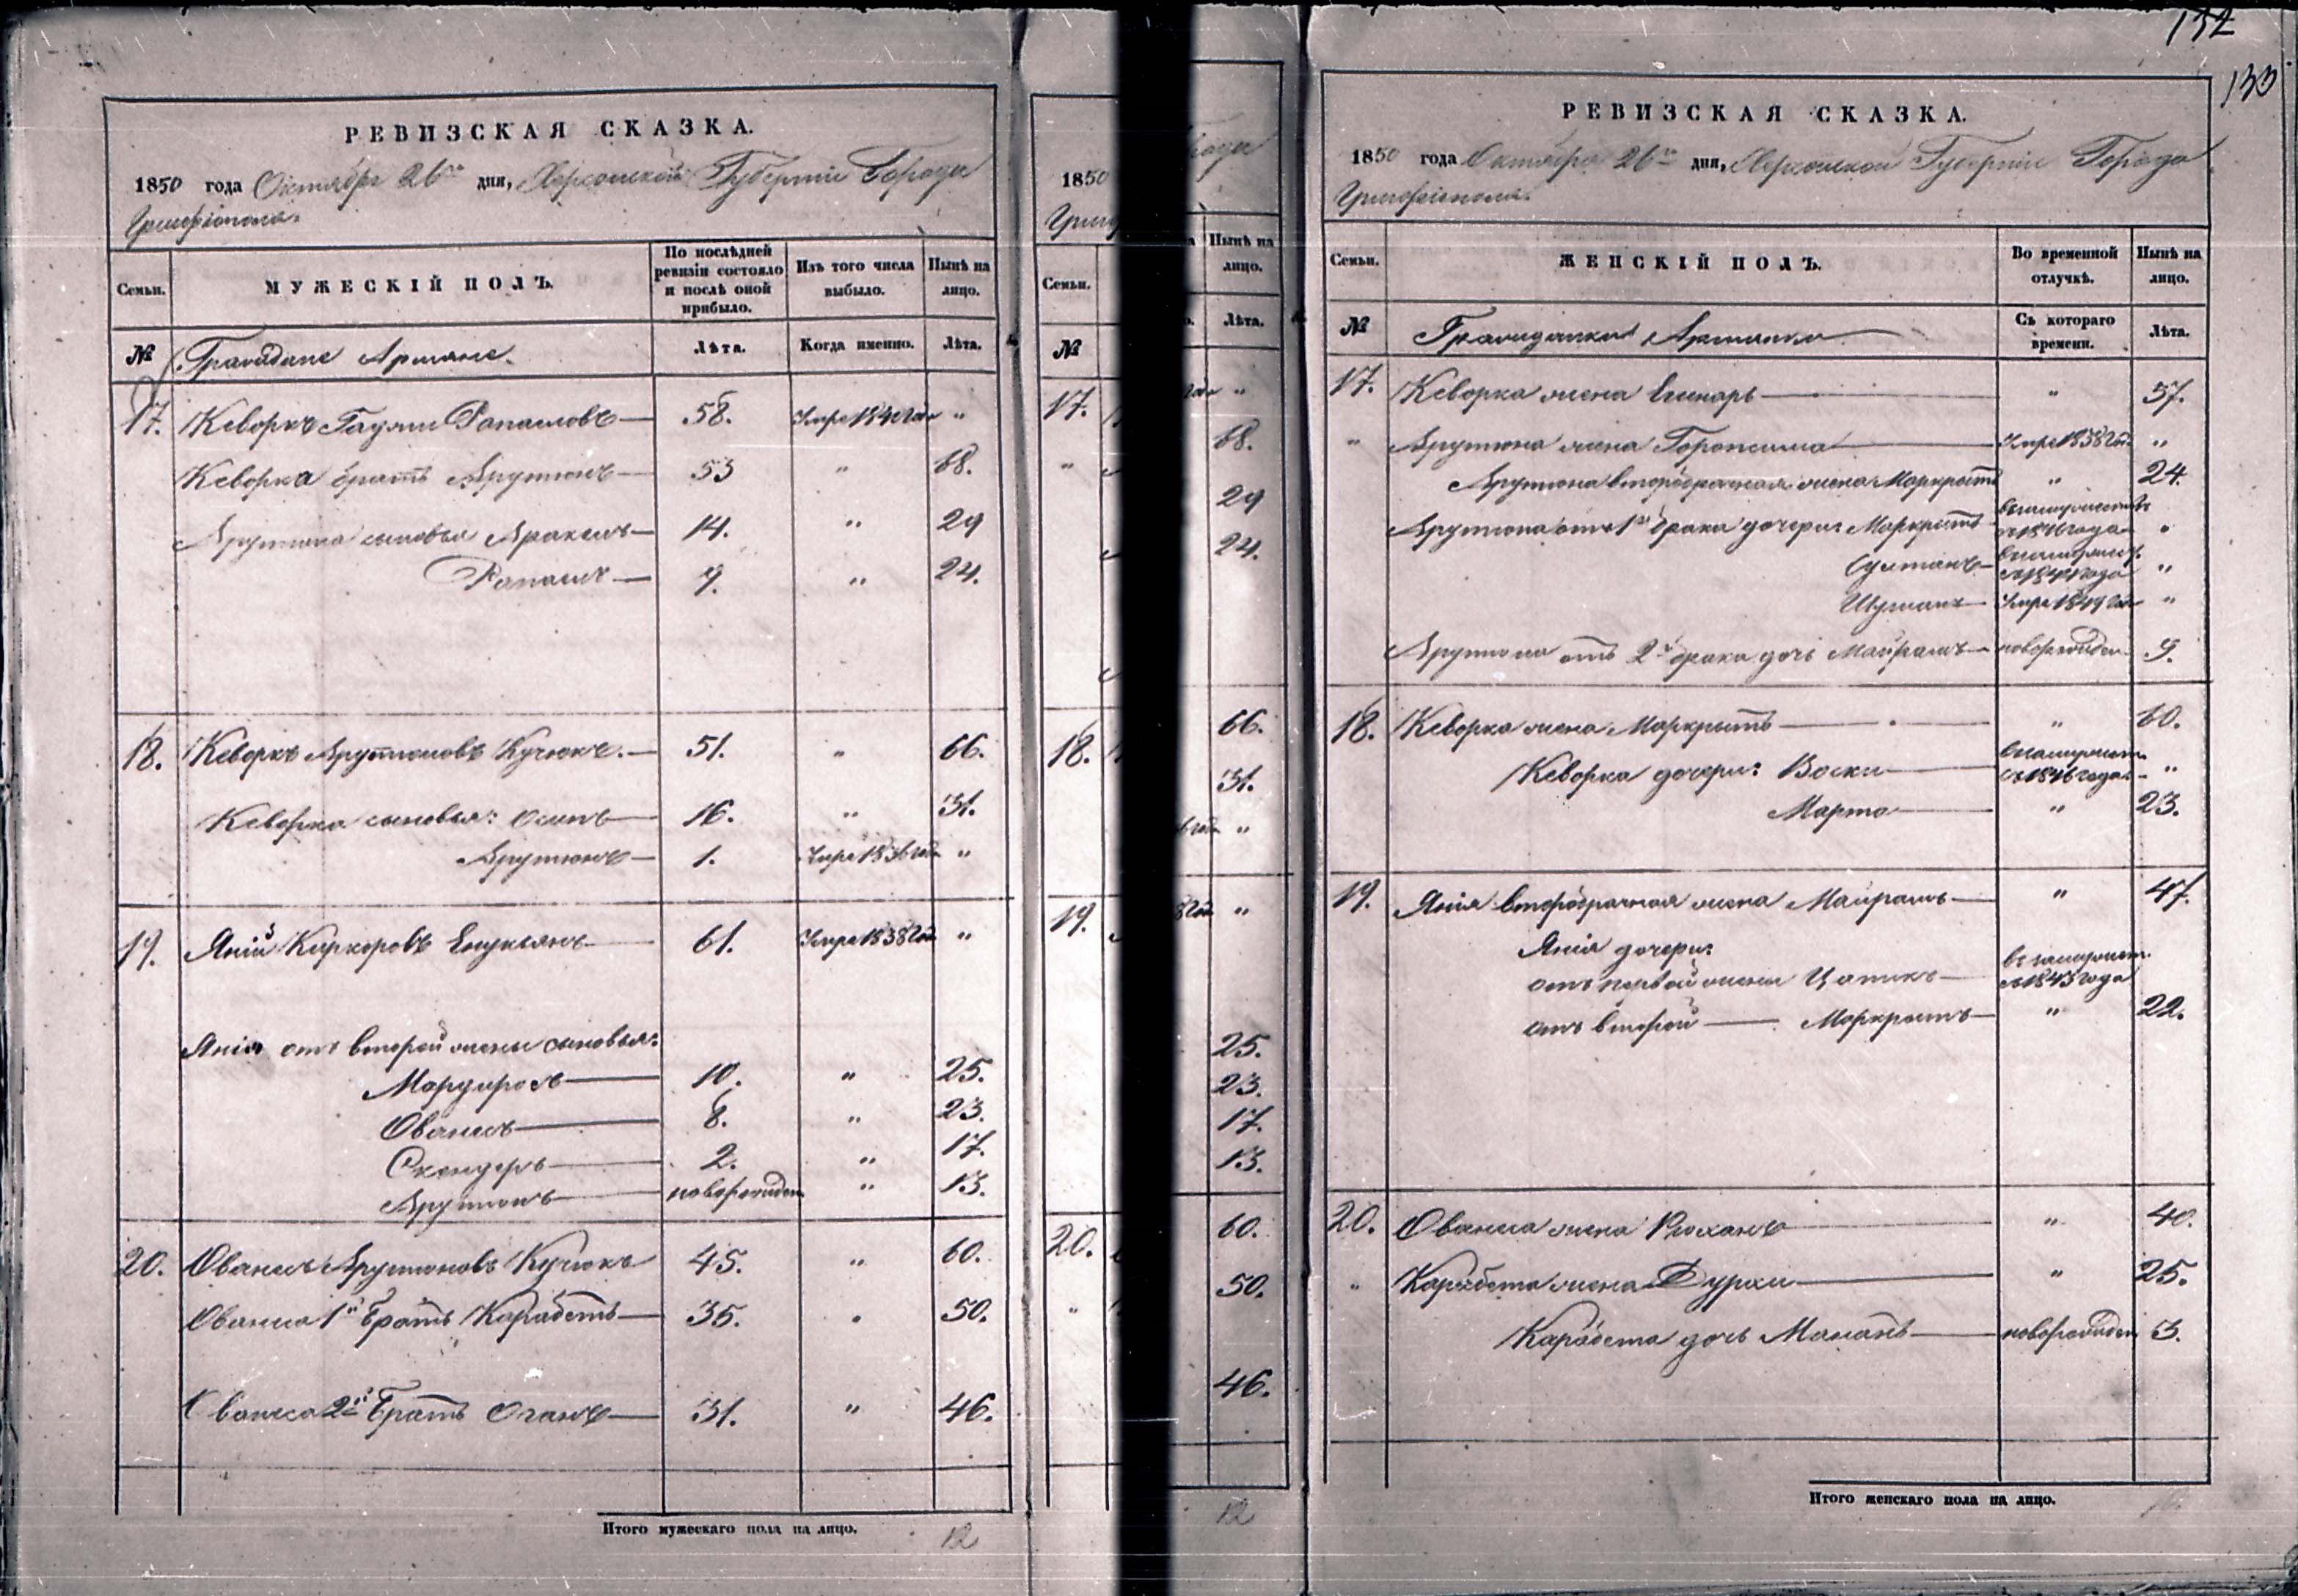 РЕВИЗСКАЯ СКАЗКА.
1850 года Октября 26го дня, Херсонской Губерніи Города
Григоріополя.
Семьи.
МУЖЕСКІЙ ПОЛЪ.
По послѣдней ревизіи состояло и послѣ оной прибыло.
Изъ того числа выбыло.
Нынѣ на лицо.
№
Граждане Армяне.
Лѣта.
Когда именно.
Лѣта.
17. Кеворкъ Папаловъ 58. Умре 1840 года "
Кеворка братъ Арутюнъ 53 " 68.
Арутюна сыновья Аракелъ 14. " 29
9. " 24.
18. Кеворкъ Арутюновъ Кучюкъ. 51. " 66.
Кеворка сыновья: Осипъ 16. " 31.
Арутюнъ 1. Умре 1836 года "
19. Яній Киркоровъ Енукьянъ 61. Умре 1838 года "
Янія отъ второй жены сыновья:
Мардиросъ 10. " 25.
Ованесъ 8. " 23.
Скендеръ 2. " 17.
Арутюнъ новорожден. " 13.
20. Ованесъ Арутюновъ Кучюкъ 45. " 60.
Ованеса 1й Братъ Карабетъ 35. " 50.
Ованеса 2й Братъ Оганъ 31. " 46.
Итого мужескаго пола на лицо. 12
1850
Семьи.
№
17.
"
18.
19.
20.
"
Нынѣ на лицо.
Лѣта.
"
68.
29
24.
66.
31.
"
"
25.
23.
17.
13.
60.
50.
46.
12
132
133
РЕВИЗСКАЯ СКАЗКА.
1850 года Октября 26го дня, Херсонской Губерніи Города
Григоріополя.
Семьи.
ЖЕНСКІЙ ПОЛЪ.
Во временной отлучкѣ.
Нынѣ на лицо.
№
Гражданки Армянки
Съ котораго времени.
Лѣта.
17. Кеворка жена " 57.
" Арутюна жена Умре 1838 год. "
Арутюна второбрачная жена Маркритъ " 24.
Арутюна отъ 1го брака дочери: Маркритъ въ замужествѣ съ 1846 года "
Султанъ въ замужест. съ 1841 года "
Шушанъ Умре 1849 года "
Арутюна отъ 2го брака дочь Майрамъ новорожден. 9.
18. Кеворка жена Маркритъ " 60.
Кеворка дочери: Воски въ замужест. съ 1846 года "
Марта " 23.
19. Янія второбрачная жена Майрамъ " 47.
Янія дочери:
отъ первой жены Цатикъ въ замужест. съ 1843 года
отъ второй Маркритъ " 22.
20. Ованеса жена " 40.
" Карабета жена " 25.
Карабета дочь новорожден. 3.
Итого женскаго пола на лицо.